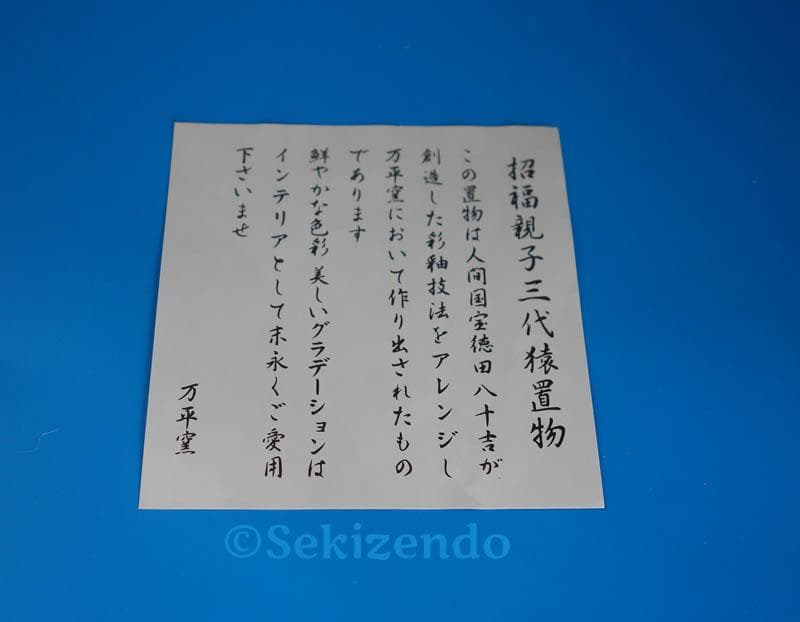 招福親子三代猿置物
この置物は人間国宝徳田八十吉が
創造した彩釉技法をアレンジし
万平窯において作り出されたもの
であります
鮮やかな色彩 美しいグラデーションは
インテリアとして末永くご愛用
下さいませ
万平窯
©Sekizendo